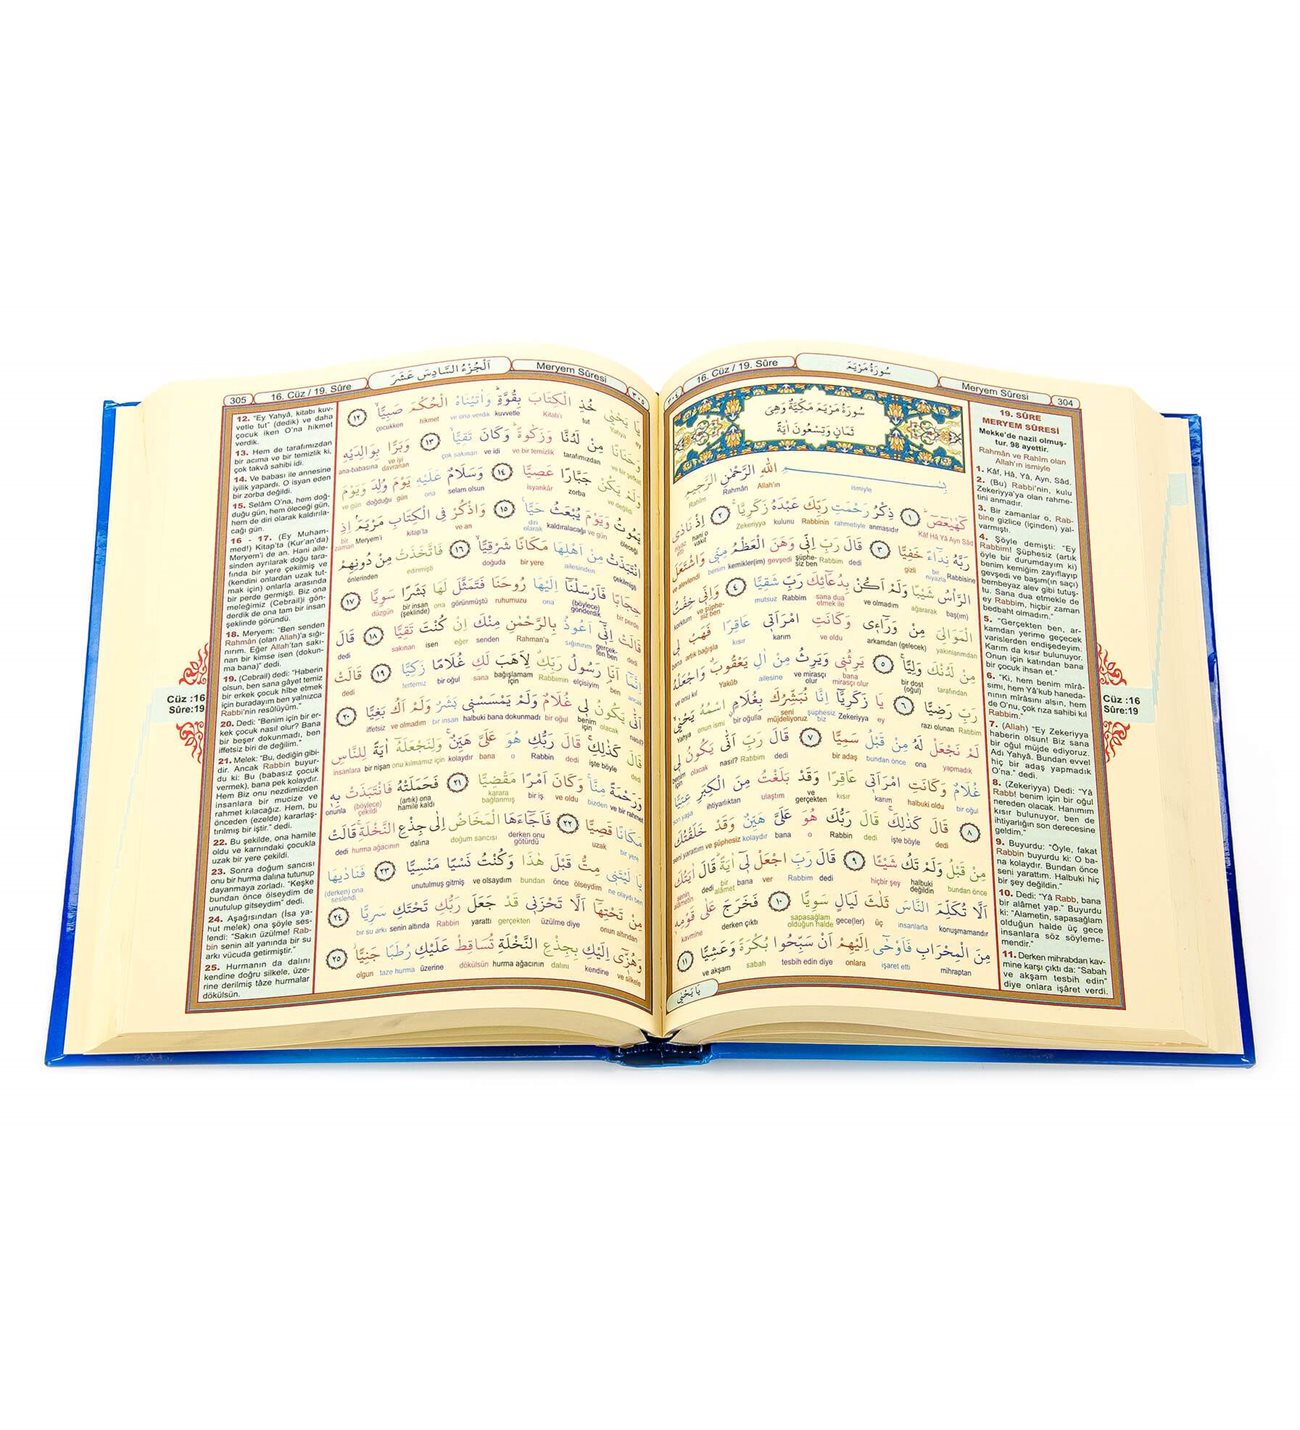 16. Cüz / 19. Sûre
سُورَةُ مَرْيَمَ
Meryem Sûresi
304
سُورَةُ مَرْيَمَ مَكِّيَّةٌ وَهِىَ
ثَمَانٍ وَتِسْعُونَ اٰيَةً
بِسْمِ اللّٰهِ الرَّحْمٰنِ الرَّحِيمِ
ismiyle Allah'ın Rahmân Rahîm
كٓهٰيٰعٓصٓ ﴿١﴾ ذِكْرُ رَحْمَتِ رَبِّكَ عَبْدَهُ زَكَرِيَّا ﴿٢﴾ اِذْ نَادٰى
Kâf Hâ Yâ Ayn Sâd anmasıdır rahmetiyle Rabbinin kulunu Zekeriyya
رَبَّهُ نِدَٓاءً خَفِيًّا ﴿٣﴾ قَالَ رَبِّ اِنّٖى وَهَنَ الْعَظْمُ مِنّٖى وَاشْتَعَلَ
Rabbisine niyazla bir gizli dedi Rabbim şüphesiz ben gevşedi kemiklerim(ler) benim ve alevlendi
الرَّاْسُ شَيْبًا وَلَمْ اَكُنْ بِدُعَٓائِكَ رَبِّ شَقِيًّا ﴿٤﴾ وَاِنّٖى خِفْتُ
baş(ım) ağararak ve olmadım sana dua etmek ile Rabbim mutsuz ve şüphesiz ben korktum
الْمَوَالِىَ مِنْ وَرَٓاءٖى وَكَانَتِ امْرَاَتٖى عَاقِرًا فَهَبْ لٖى
yakınlarımdan arkamdan (gelecek) ve oldu karım kısır bağışla bana artık
مِنْ لَدُنْكَ وَلِيًّا ﴿٥﴾ يَرِثُنٖى وَيَرِثُ مِنْ اٰلِ يَعْقُوبَ وَاجْعَلْهُ
tarafından bir dost (oğul) bana mirasçı olur ve mirasçı olur ailesine Yakûb
رَبِّ رَضِيًّا ﴿٦﴾ يَا زَكَرِيَّٓا اِنَّا نُبَشِّرُكَ بِغُلَامٍ اسْمُهُ يَحْيٰى
razı olunan Rabbim ey Zekeriyya şüphesiz biz seni müjdeliyoruz bir oğulla onun ismi Yahya
لَمْ نَجْعَلْ لَهُ مِنْ قَبْلُ سَمِيًّا ﴿٧﴾ قَالَ رَبِّ اَنّٰى يَكُونُ لٖى
yapmadık ona bundan önce bir adaş dedi Rabbim nasıl? olacak benim için
غُلَامٌ وَكَانَتِ امْرَاَتٖى عَاقِرًا وَقَدْ بَلَغْتُ مِنَ الْكِبَرِ عِتِيًّا
bir oğul halbuki oldu karım kısır ve gerçekten ulaştım ihtiyarlıktan son yaşa
﴿٨﴾ قَالَ كَذٰلِكَ قَالَ رَبُّكَ هُوَ عَلَىَّ هَيِّنٌ وَقَدْ خَلَقْتُكَ
dedi işte böyle dedi Rabbin o bana kolaydır ve şüphesiz seni yarattım
مِنْ قَبْلُ وَلَمْ تَكُ شَيْئًا ﴿٩﴾ قَالَ رَبِّ اجْعَلْ لٖٓى اٰيَةً قَالَ اٰيَتُكَ
bundan önce halbuki değildin hiçbir şey dedi Rabbim ver bana bir alâmet dedi senin alâmetin
اَلَّا تُكَلِّمَ النَّاسَ ثَلٰثَ لَيَالٍ سَوِيًّا ﴿١٠﴾ فَخَرَجَ عَلٰى قَوْمِهٖ
konuşmamandır insanlarla üç gece(ler) sapasağlam olduğun halde derken çıktı kavmine
مِنَ الْمِحْرَابِ فَاَوْحٰٓى اِلَيْهِمْ اَنْ سَبِّحُوا بُكْرَةً وَعَشِيًّا ﴿١١﴾
mihraptan işaret etti onlara tesbih edin diye sabah ve akşam
يَا يَحْيٰى
19. SÛRE
MERYEM SÛRESİ
Mekke'de nazil olmuş-
tur. 98 ayettir.
Rahmân ve Rahîm olan
Allah'ın ismiyle
1. Kâf, Hâ, Yâ, Ayn, Sâd.
2. (Bu) Rabbi'nin, kulu
Zekeriyya'ya olan rahme-
tini anmadır.
3. Bir zamanlar o, Rab-
bine gizlice (içinden) yal-
varmıştı.
4. Şöyle demişti: "Ey
Rabbim! Şüphesiz (artık
öyle bir durumdayım ki)
benim kemiğim zayıflayıp
gevşedi ve başım(ın saçı)
bembeyaz alev gibi tutuş-
tu. Sana dua etmekle de
ey Rabbim, hiçbir zaman
bedbaht olmadım."
5. "Gerçekten ben, ar-
kamdan yerime geçecek
varislerden endişedeyim.
Karım da kısır bulunuyor.
Onun için katından bana
bir çocuk ihsan et."
6. "Ki, hem benim mirâ-
sımı, hem Yâ'kub hanedâ-
nının mirâsını alsın, hem
de O'nu, çok rıza sahibi kıl
Rabbim."
7. (Allah) "Ey Zekeriyya
haberin olsun! Biz sana
bir oğul müjde ediyoruz.
Adı Yahyâ. Bundan evvel
hiç bir adaş yapmadık
O'na." dedi.
8. (Zekeriyya) Dedi: "Yâ
Rabb! benim için bir oğul
nereden olacak. Hanımım
kısır bulunuyor, ben de
ihtiyarlığın son derecesine
geldim."
9. Buyurdu: "Öyle, fakat
Rabbin buyurdu ki: O ba-
na kolaydır. Bundan önce
seni yarattım. Halbuki hiç
bir şey değildin."
10. Dedi: "Yâ Rabb, bana
bir alâmet yap." Buyurdu
ki: "Alametin, sapasağlam
olduğun halde üç gece
insanlara söz söyleme-
mendir."
11. Derken mihrabdan kav-
mine karşı çıktı da: "Sabah
ve akşam tesbih edin"
diye onlara işâret verdi.
Cüz :16
Sûre:19
305
16. Cüz / 19. Sûre
اَلْجُزْءُ السَّادِسَ عَشَرَ
Meryem Sûresi
٣٠٥
يَا يَحْيٰى خُذِ الْكِتَابَ بِقُوَّةٍ وَاٰتَيْنَاهُ الْحُكْمَ صَبِيًّا ﴿١٢﴾
ey Yahya tut Kitab'ı kuvvetle ve ona verdik hikmet çocukken
وَحَنَانًا مِنْ لَدُنَّا وَزَكٰوةً وَكَانَ تَقِيًّا ﴿١٣﴾ وَبَرًّا بِوَالِدَيْهِ
tarafımızdan ve bir temizlik ve idi çok sakınan ve iyi davranan ana-babasına
وَلَمْ يَكُنْ جَبَّارًا عَصِيًّا ﴿١٤﴾ وَسَلَامٌ عَلَيْهِ يَوْمَ وُلِدَ وَيَوْمَ
ve değildi zorba isyankâr selam olsun ona gün doğduğu ve gün
يَمُوتُ وَيَوْمَ يُبْعَثُ حَيًّا ﴿١٥﴾ وَاذْكُرْ فِى الْكِتَابِ مَرْيَمَ اِذِ
öleceği ve gün kaldırılacağı diri olarak ve an kitap'ta Meryem'i bir zaman
انْتَبَذَتْ مِنْ اَهْلِهَا مَكَانًا شَرْقِيًّا ﴿١٦﴾ فَاتَّخَذَتْ مِنْ دُونِهِمْ
çekilmişti ailesinden bir yere doğuda edinmişti önlerinden
حِجَابًا فَاَرْسَلْنَٓا اِلَيْهَا رُوحَنَا فَتَمَثَّلَ لَهَا بَشَرًا سَوِيًّا ﴿١٧﴾
bir perde (böylece) gönderdik ona ruhumuzu görünmüştü ona bir insan (şeklinde) düzgün
قَالَتْ اِنّٖٓى اَعُوذُ بِالرَّحْمٰنِ مِنْكَ اِنْ كُنْتَ تَقِيًّا ﴿١٨﴾ قَالَ
dedi gerçekten ben sığınırım Rahman'a senden eğer isen sakınan dedi
اِنَّمَٓا اَنَا۬ رَسُولُ رَبِّكِ لِاَهَبَ لَكِ غُلَامًا زَكِيًّا ﴿١٩﴾ قَالَتْ
ancak ben elçisiyim Rabbimin bağışlamam için sana bir oğul tertemiz dedi
اَنّٰى يَكُونُ لٖى غُلَامٌ وَلَمْ يَمْسَسْنٖى بَشَرٌ وَلَمْ اَكُ بَغِيًّا ﴿٢٠﴾
nasıl? olacak benim için bir oğul halbuki bana dokunmadı bir insan ve olmadım iffetsiz
قَالَ كَذٰلِكِ قَالَ رَبُّكِ هُوَ عَلَىَّ هَيِّنٌ وَلِنَجْعَلَهُٓ اٰيَةً لِلنَّاسِ
dedi işte böyle dedi Rabbin o bana kolaydır onu kılmamız için bir nişan insanlara
وَرَحْمَةً مِنَّا وَكَانَ اَمْرًا مَقْضِيًّا ﴿٢١﴾ فَحَمَلَتْهُ فَانْتَبَذَتْ بِهٖ
ve bir rahmet bizden ve oldu bir iş karara bağlanmış (artık) ona hamile kaldı (böylece) çekildi onunla
مَكَانًا قَصِيًّا ﴿٢٢﴾ فَاَجَٓاءَهَا الْمَخَاضُ اِلٰى جِذْعِ النَّخْلَةِ قَالَتْ
bir yere uzak derken onu götürdü doğum sancısı dalına hurma ağacının dedi
يَا لَيْتَنٖى مِتُّ قَبْلَ هٰذَا وَكُنْتُ نَسْيًا مَنْسِيًّا ﴿٢٣﴾ فَنَادٰيهَا
ne olaydı ben ölseydim önce bundan ve olsaydım unutulmuş gitmiş (derken) ona seslendi
مِنْ تَحْتِهَٓا اَلَّا تَحْزَنٖى قَدْ جَعَلَ رَبُّكِ تَحْتَكِ سَرِيًّا ﴿٢٤﴾
onun altından üzülme diye gerçekten yarattı Rabbin senin altında bir su arkı
وَهُزّٖٓى اِلَيْكِ بِجِذْعِ النَّخْلَةِ تُسَاقِطْ عَلَيْكِ رُطَبًا جَنِيًّا ﴿٢٥﴾
ve silkele kendine dalını hurma ağacının dökülsün üzerine taze hurma olgun
12. "Ey Yahyâ, kitabı kuv-
vetle tut" (dedik) ve daha
çocuk iken O'na hikmet
verdik.
13. Hem de tarafımızdan
bir acıma ve bir temizlik ki,
çok takvâ sahibi idi.
14. Ve babası ile annesine
iyilik yapardı. O isyan eden
bir zorba değildi.
15. Selâm O'na, hem doğ-
duğu gün, hem öleceği gün,
hem de diri olarak kaldırıla-
cağı gün.
16 - 17. (Ey Muham-
med!) Kitap'ta (Kur'an'da)
Meryem'i de an. Hani aile-
sinden ayrılarak doğu tara-
fında bir yere çekilmiş ve
(kendini onlardan uzak tut-
mak için) onlarla arasında
bir perde germişti. Biz ona
meleğimiz (Cebrail)i gön-
derdik de ona tam bir insan
şeklinde göründü.
18. Meryem: "Ben senden
Rahmân (olan Allah)'a sığı-
nırım. Eğer Allah'tan sakı-
nan bir kimse isen (dokun-
ma bana)" dedi.
19. (Cebrail) dedi: "Haberin
olsun, ben sana gâyet temiz
bir erkek çocuk hîbe etmek
için buradayım ben yalnızca
Rabbi'nin resûlüyüm."
20. Dedi: "Benim için bir er-
kek çocuk nasıl olur? Bana
bir beşer dokunmadı, ben
iffetsiz biri de değilim."
21. Melek: "Bu, dediğin gibi-
dir. Ancak Rabbin buyur-
du ki: Bu (babasız çocuk
vermek), bana pek kolaydır.
Hem Biz onu nezdimizden
insanlara bir mucize ve
rahmet kılacağız. Hem, bu
önceden (ezelde) kararlaş-
tırılmış bir iştir." dedi.
22. Bu şekilde, ona hamile
oldu ve karnındaki çocukla
uzak bir yere çekildi.
23. Sonra doğum sancısı
onu bir hurma dalına tutunup
dayanmaya zorladı. "Keşke
bundan önce ölseydim de
unutulup gitseydim" dedi.
24. Aşağısından (İsa ya-
hut melek) ona şöyle ses-
lendi: "Sakın üzülme! Rab-
bin senin alt yanında bir su
arkı vücuda getirmiştir."
25. Hurmanın da dalını
kendine doğru silkele, üze-
rine derilmiş tâze hurmalar
dökülsün.
Cüz :16
Sûre:19